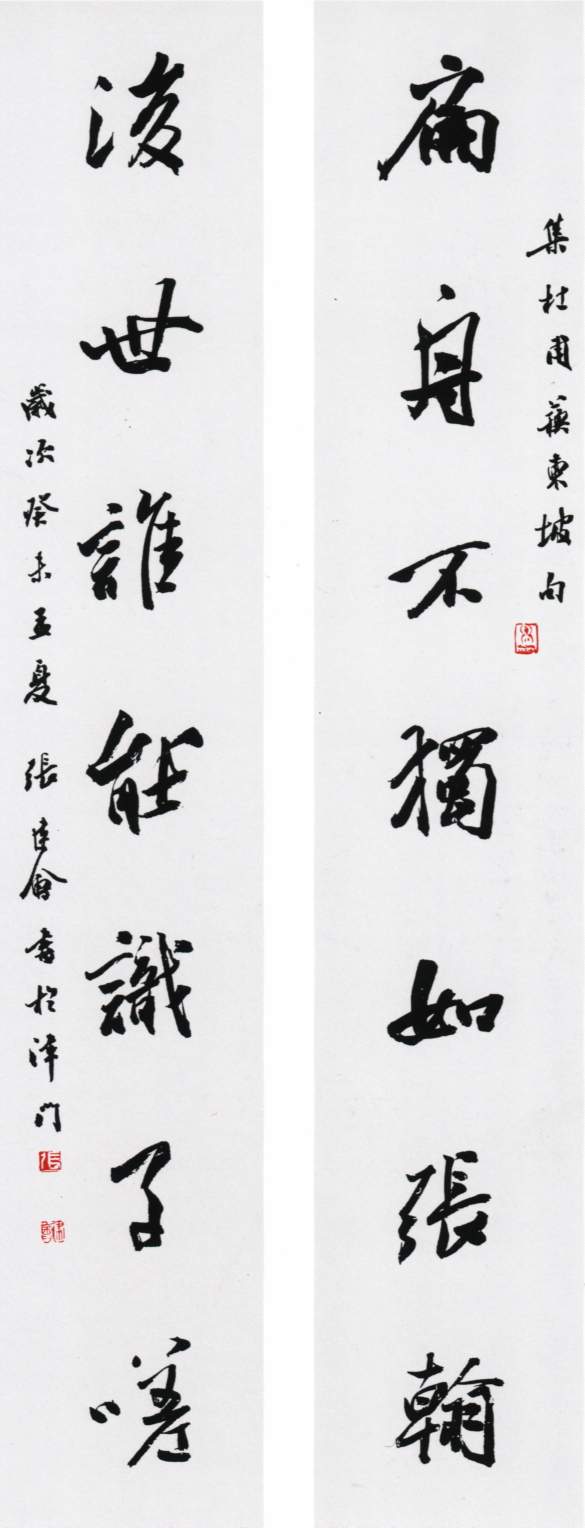 集杜甫蘇東坡句
扁舟不獨如張翰
後世誰能識子嗟
歲次癸未孟夏 張建會書於津門